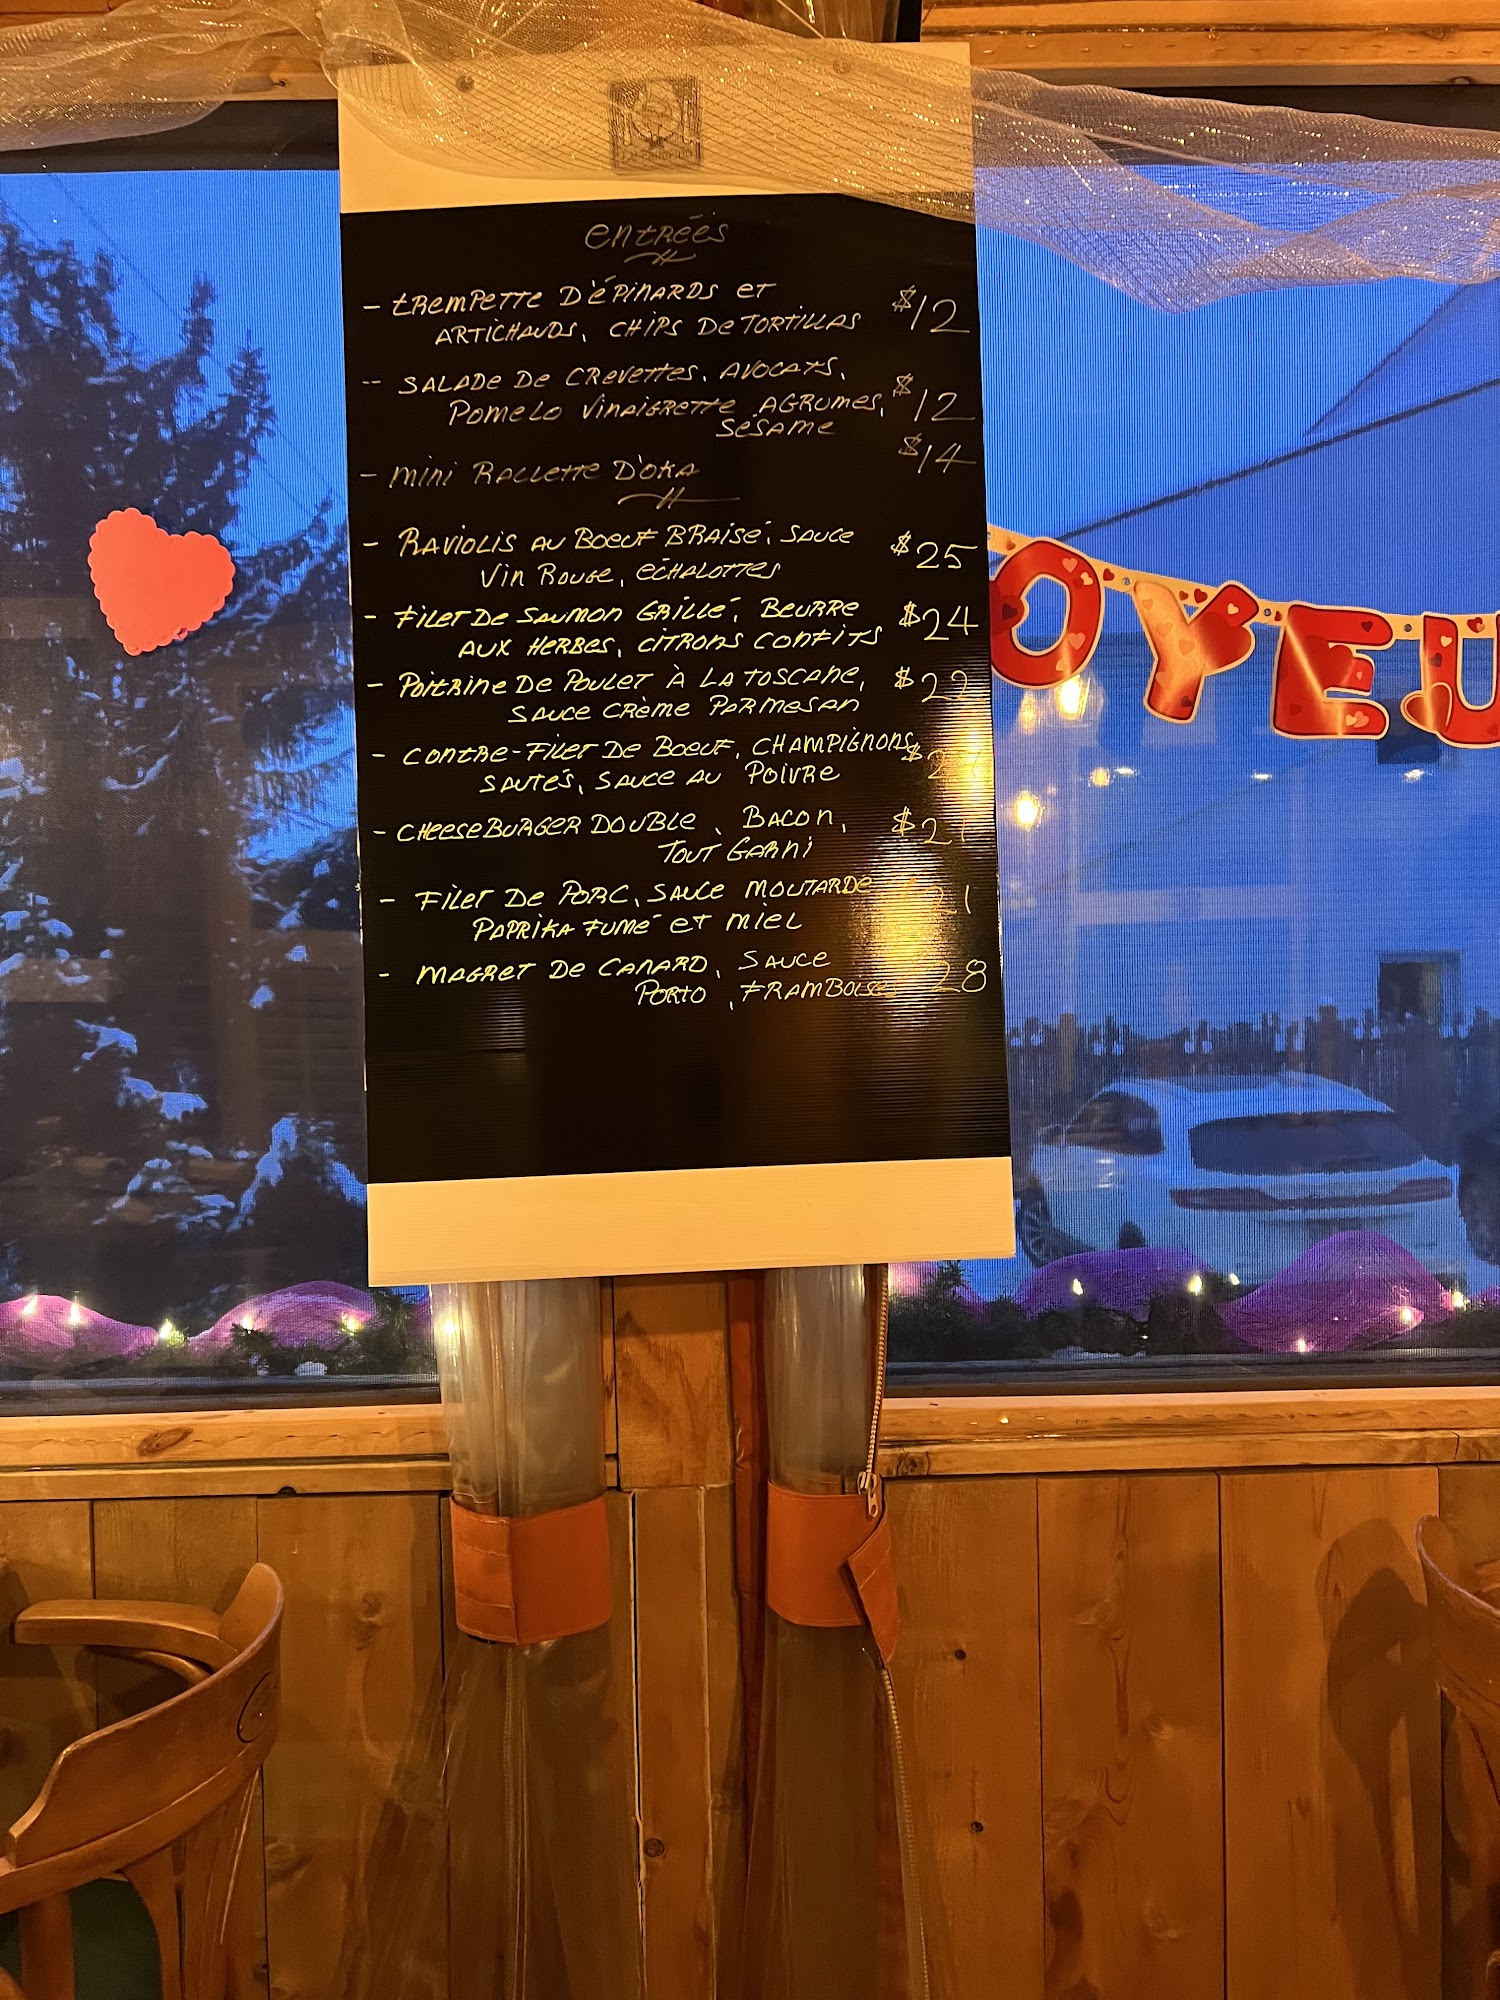 entrées
- trempette d'épinards et $12
artichauds, chips de tortillas
-- salade de crevettes, avocats, $12
pomelo vinaigrette agrumes,
sésame
- mini raclette d'oka $14
- Raviolis au boeuf braisé, sauce $25
vin rouge, échalottes
- Filet de saumon grillé, beurre $24
aux herbes, citrons confits
- Poitrine de poulet à la toscane, $22
sauce crème parmesan
- contre-filet de boeuf, champignons $
sautés, sauce au poivre
- cheeseburger double, bacon, $21
tout garni
- Filet de porc, sauce moutarde 21
paprika fumé et miel
- magret de canard, sauce 28
porto, framboises
OYEU